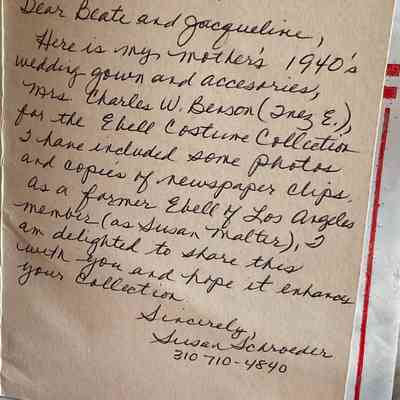 Dear Beate and Jacqueline,
Here is my mother's 1940's
wedding gown and accesories,
Mrs Charles W. Benson (Inez E.),
for the Ebell Costume Collection
I have included some photos
and copies of newspaper clips.
As a former Ebell of Los Angeles
member (as Susan Malter), I
am delighted to share this
with you and hope it enhances
your collection
Sincerely,
Susan Schroeder
310 710-4840